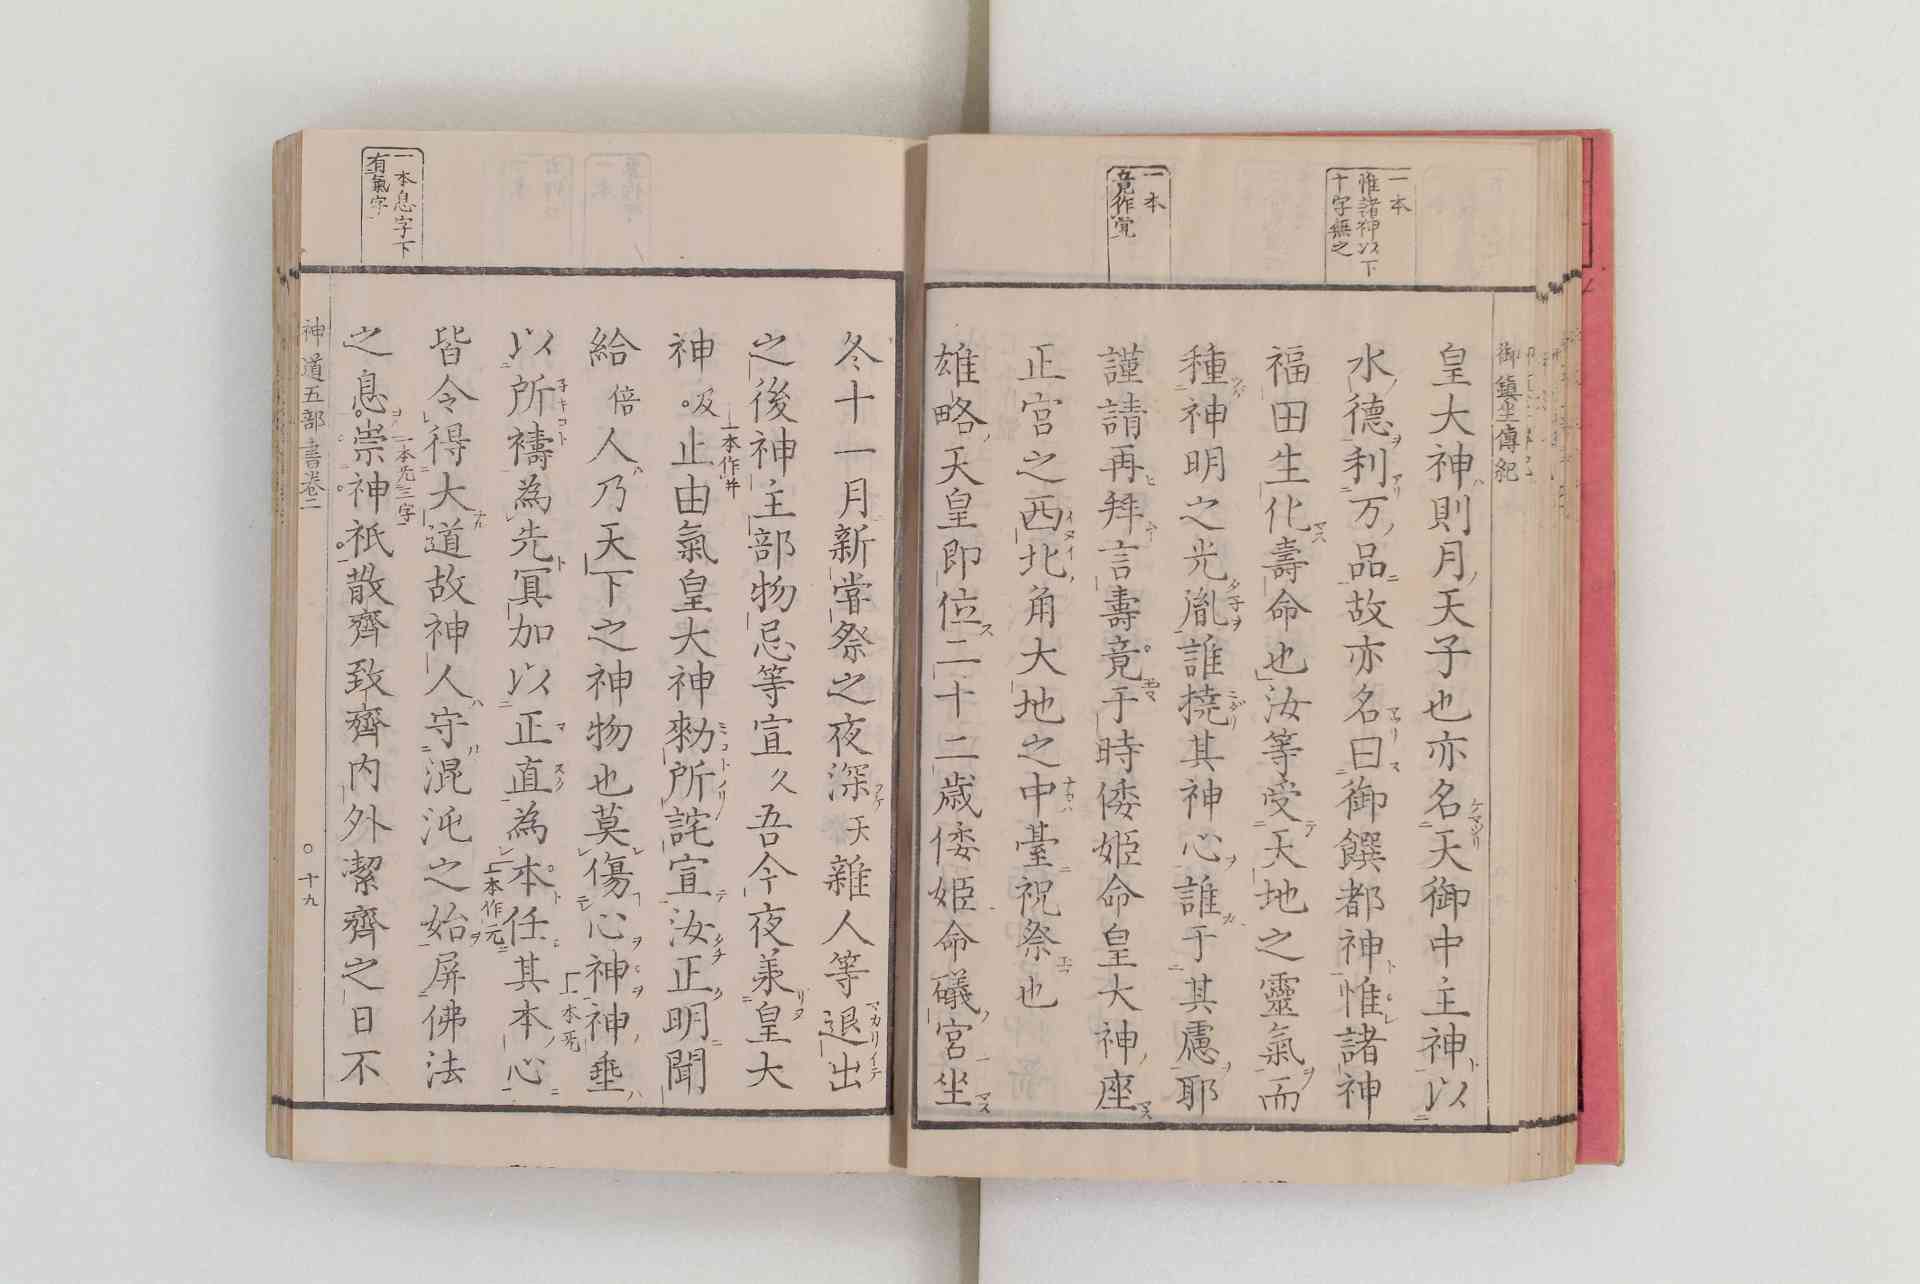 御鎮坐傳紀
一本
惟諸神以下
十字無之
一本
竟作覚
皇大神則月天子也亦名天御中主神以
水德利万品故亦名曰御饌都神惟諸神
福田生化壽命也汝等受天地之靈氣而
種神明之光胤誰撓其神心誰于其慮耶
謹請再拜言壽竟于時倭姬命皇大神座
正宮之西北角大地之中臺祝祭也
雄略天皇即位二十二歳倭姬命礒宮坐
一本息字下
有氣字
冬十一月新嘗祭之夜深天雜人等退出
之後神主部物忌等宣久吾今夜羕皇大
神及止由氣皇大神勑所詫宣汝正明聞
一本作幷
給倍人乃天下之神物也莫傷心神神垂
以所禱為先冥加以正直為本任其本心
一本作元
皆令得大道故神人守混沌之始屏佛法
之息崇神祇散齊致齊內外潔齊之日不
一本先三字
神道五部書卷二
十九